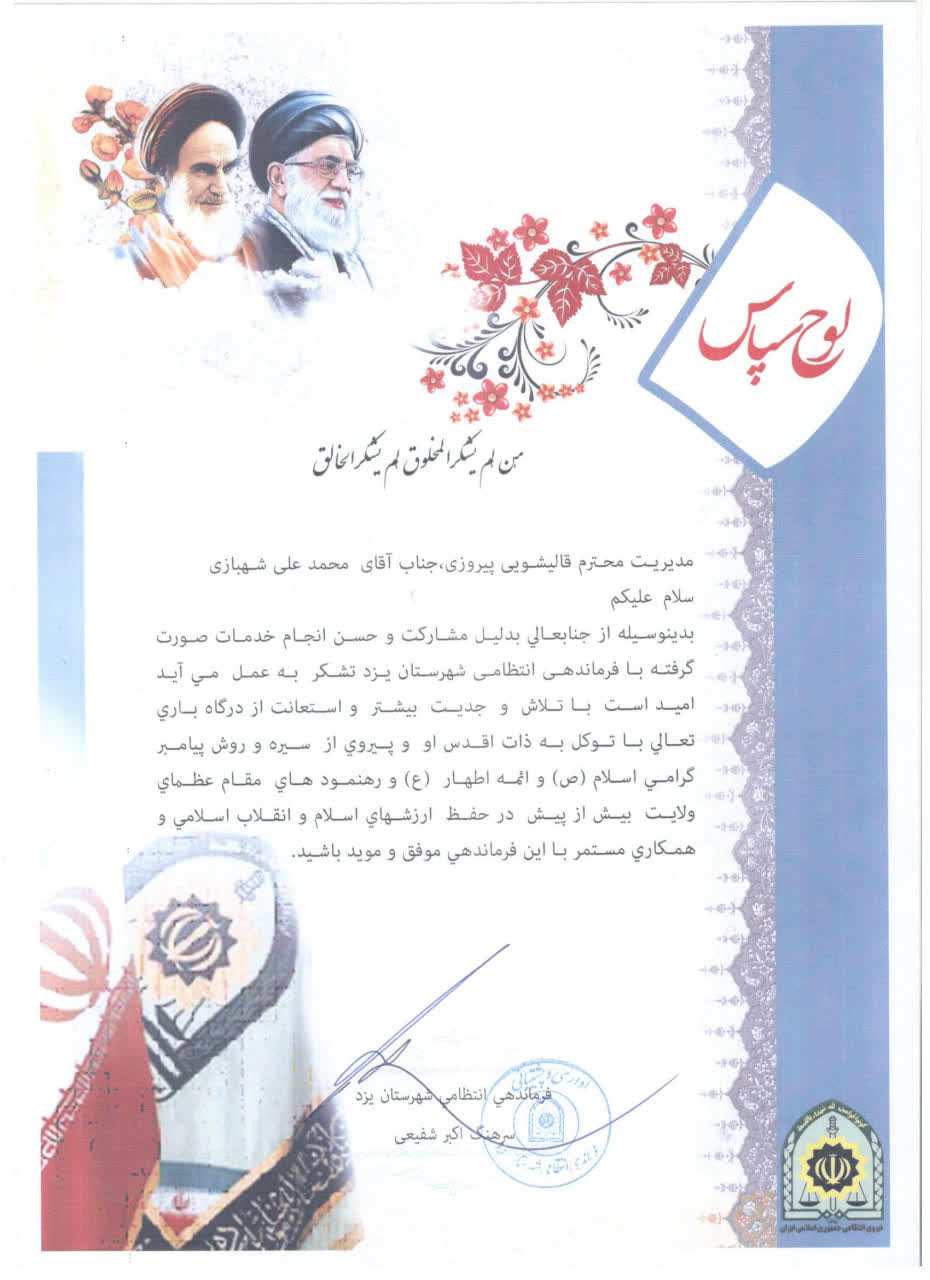 لوح سپاس
من لم یشکر المخلوق لم یشکر الخالق
مدیریت محترم قالیشویی پیروزی،جناب آقای محمد علی شهبازی
سلام علیکم
بدینوسیله از جنابعالي بدلیل مشارکت و حسن انجام خدمات صورت
گرفته با فرماندهی انتظامی شهرستان یزد تشکر به عمل مي آید
امید است با تلاش و جدیت بیشتر و استعانت از درگاه باري
تعالي با توکل به ذات اقدس او و پیروي از سیره و روش پیامبر
گرامي اسلام (ص) و ائمه اطهار (ع) و رهنمود هاي مقام عظماي
ولایت بیش از پیش در حفظ ارزشهاي اسلام و انقلاب اسلامي و
همکاري مستمر با این فرماندهي موفق و موید باشید.
فرماندهي انتظامي شهرستان یزد
سرهنگ اکبر شفیعی
نیروی انتظامی جمهوری اسلامی ایران